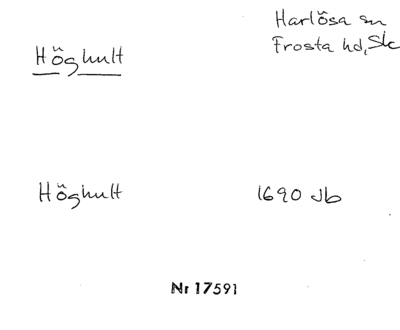 Höghult
Harlösa sn
Frosta hd, Sk
Höghult
1690 Jb
Nr 17591